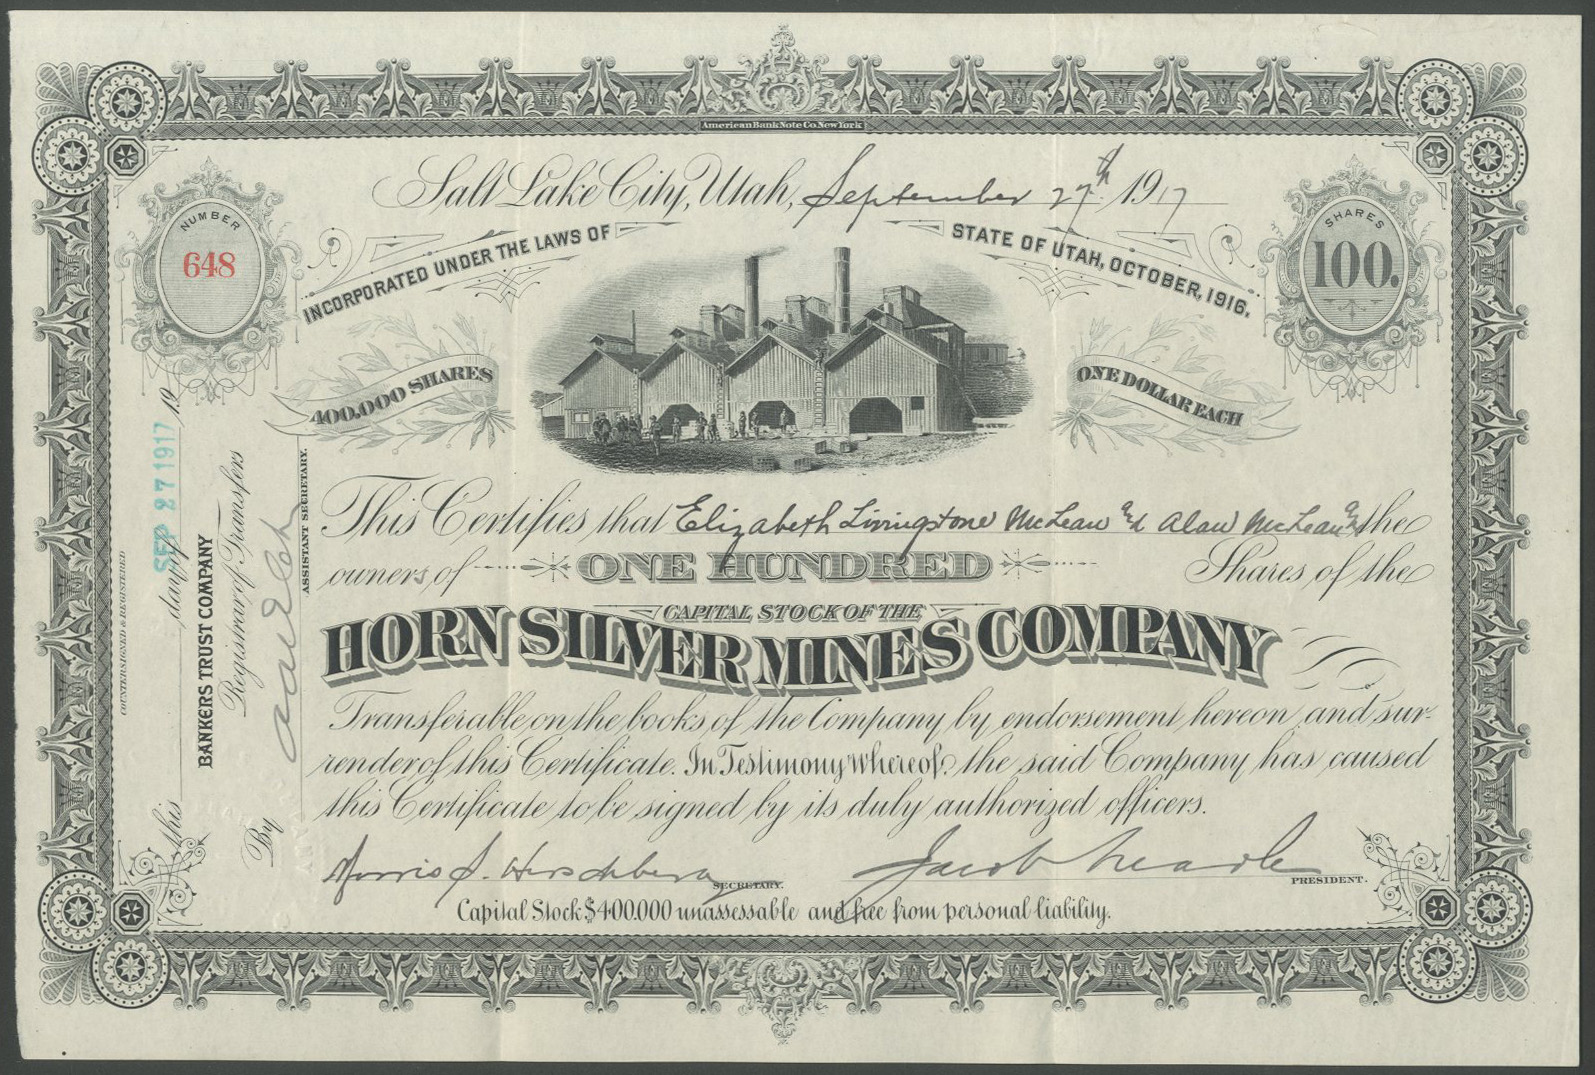 American Bank Note Co. New York
Salt Lake City, Utah, September 27th 1917
NUMBER
648
SHARES
100.
INCORPORATED UNDER THE LAWS OF
STATE OF UTAH, OCTOBER, 1916.
400.000 SHARES
ONE DOLLAR EACH
This Certifies that Elizabeth Livingstone McLean and Alan McLean the
owners of ONE HUNDRED Shares of the
CAPITAL STOCK OF THE
HORN SILVER MINES COMPANY
Transferable on the books of the Company by endorsement hereon and sur-
render of this Certificate. In Testimony Whereof, the said Company has caused
this Certificate to be signed by its duly authorized officers.
Morris S. Hirschberg
SECRETARY.
Jacob
PRESIDENT.
Capital Stock $400.000 unassessable and free from personal liability.
COUNTERSIGNED & REGISTERED
this day of SEP 27 1917 19
BANKERS TRUST COMPANY
Registrar of Transfers
By
ASSISTANT SECRETARY.